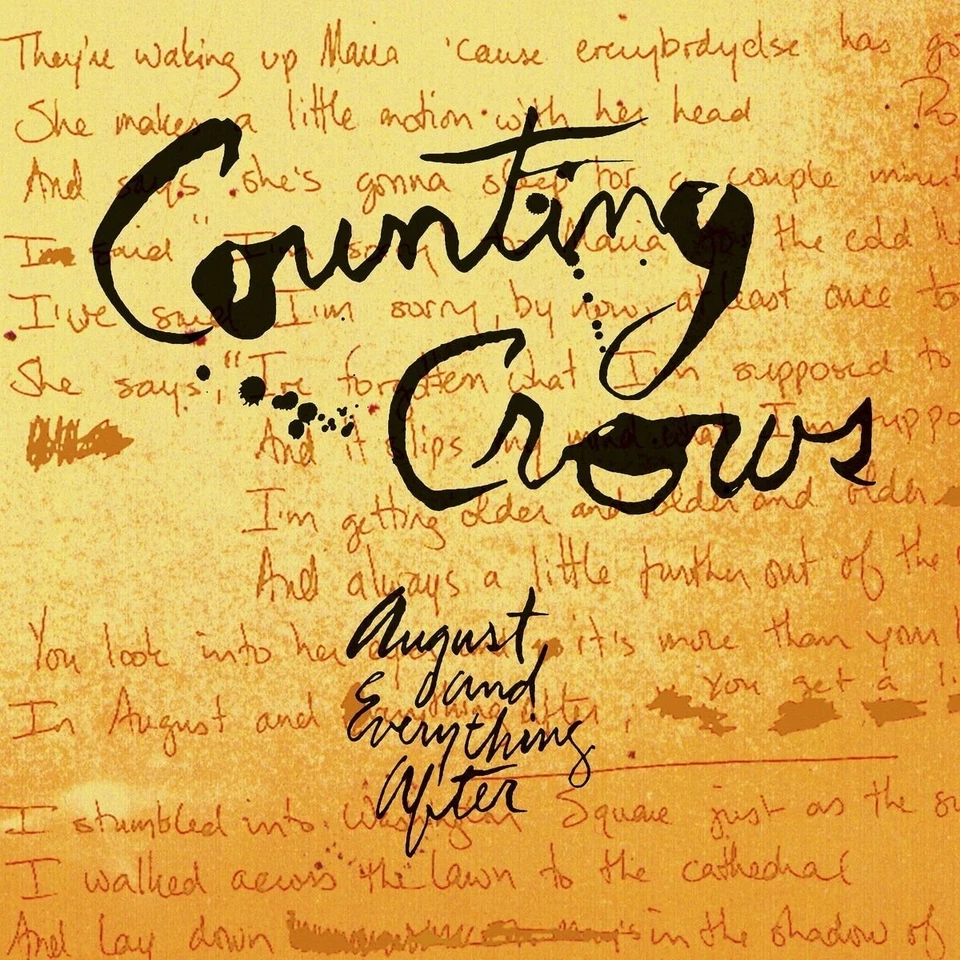 They're waking up Maria 'cause everybody else has go
She makes a little motion with her head Ro
And says she's gonna sleep for a couple minut
I'm said "I'm sorry" to Maria for the cold
I've said I'm sorry, by now, at least once to
She says, "I've forgotten what I'm supposed to
And it slips my mind what I'm suppo
I'm getting older and older and older
And always a little further out of the
You look into her eyes it's more than your
You get a li
In August and Everything After,
I stumbled into Washington Square just as the su
I walked across the lawn to the cathedral
And lay down in the shadow of
Counting
Crows
August
and
Everything
After